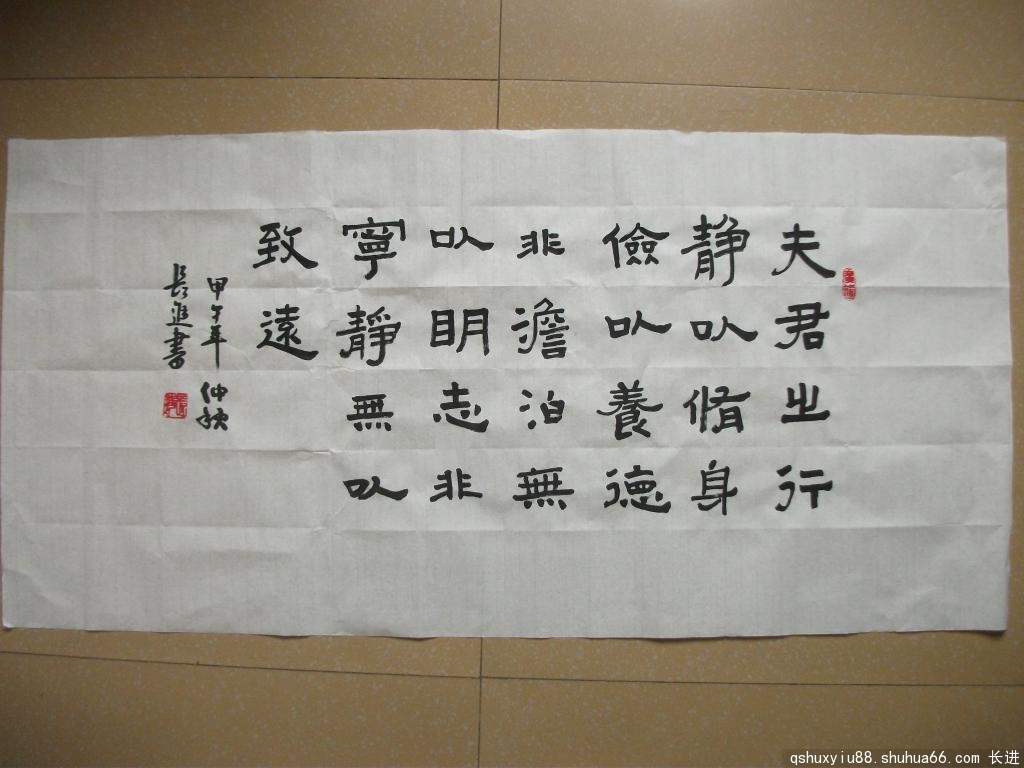 夫君之行
静以脩身
儉以養德
非澹泊無
以明志非
寧靜無以
致遠
甲午年仲秋
長進書
qshuxyiu88.shuhua66.com 长进